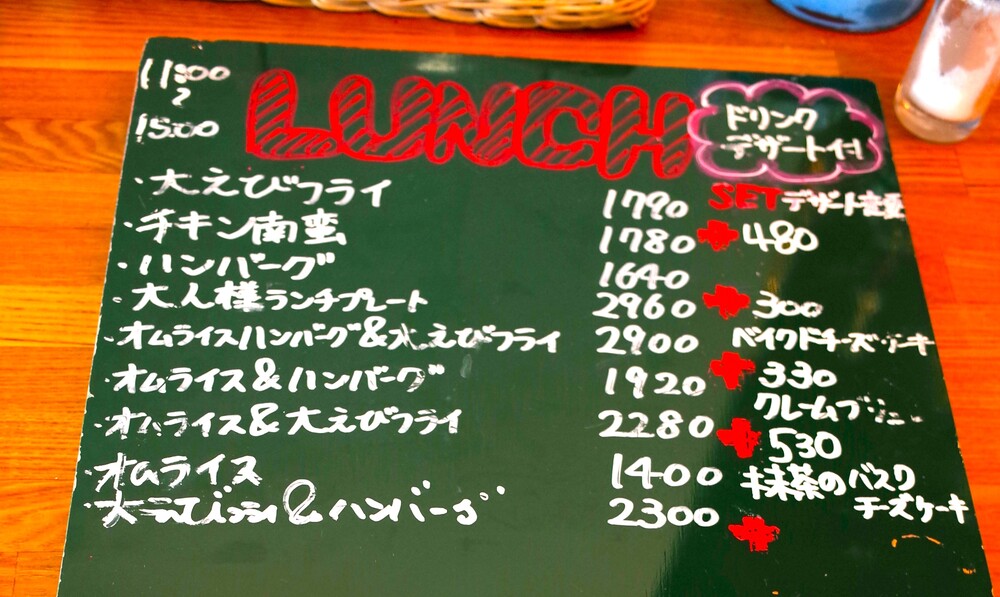 11:00
~
15:00
LUNCH
ドリンク
デザート付
・大えびフライ 1790
・チキン南蛮 1780
・ハンバーグ 1640
・大人様ランチプレート 2960
・オムライスハンバーグ&大えびフライ 2900
・オムライス&ハンバーグ 1920
・オムライス&大えびフライ 2280
・オムライス 1400
・大えびフライ&ハンバーグ 2300
SETデザート変更
+480
+300
ベイクドチーズケーキ
+330
クレームブリュレ
+530
抹茶のバスク
チーズケーキ
+